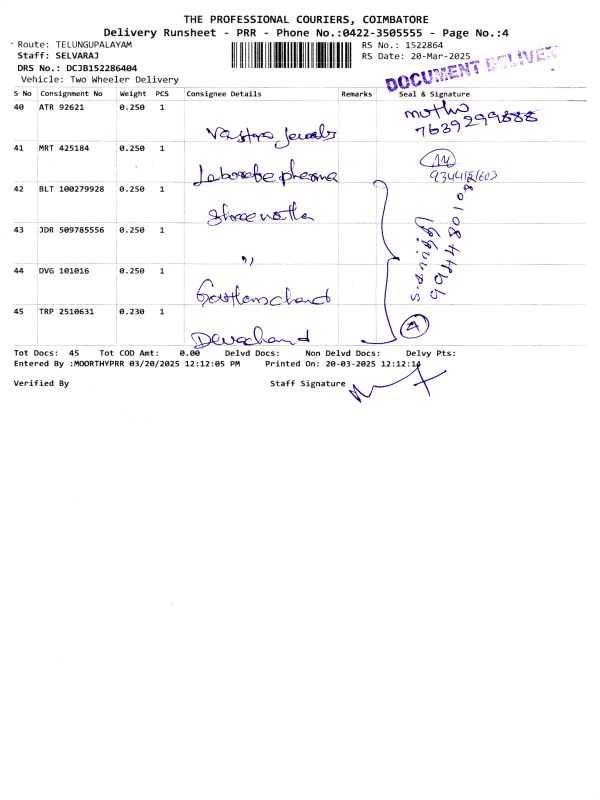 THE PROFESSIONAL COURIERS, COIMBATORE
Delivery Runsheet - PRR - Phone No.:0422-3505555 - Page No.:4
Route: TELUNGUPALAYAM
RS No.: 1522864
Staff: SELVARAJ
RS Date: 20-Mar-2025
DRS No.: DCJB152286404
DOCUMENT DELIVER
Vehicle: Two Wheeler Delivery
S No Consignment No Weight PCS Consignee Details Remarks Seal & Signature
40 ATR 92621 0.250 1
7639299888
41 MRT 425184 0.250 1
42 BLT 100279928 0.250 1
43 JDR 509785556 0.250 1
994480108
44 DVG 101016 0.250 1
45 TRP 2510631 0.230 1
4
Devachand
Tot Docs: 45 Tot COD Amt: 0.00 Delvd Docs: Non Delvd Docs: Delvy Pts:
Entered By :MOORTHYPRR 03/20/2025 12:12:05 PM Printed On: 20-03-2025 12:12:14
Verified By Staff Signature